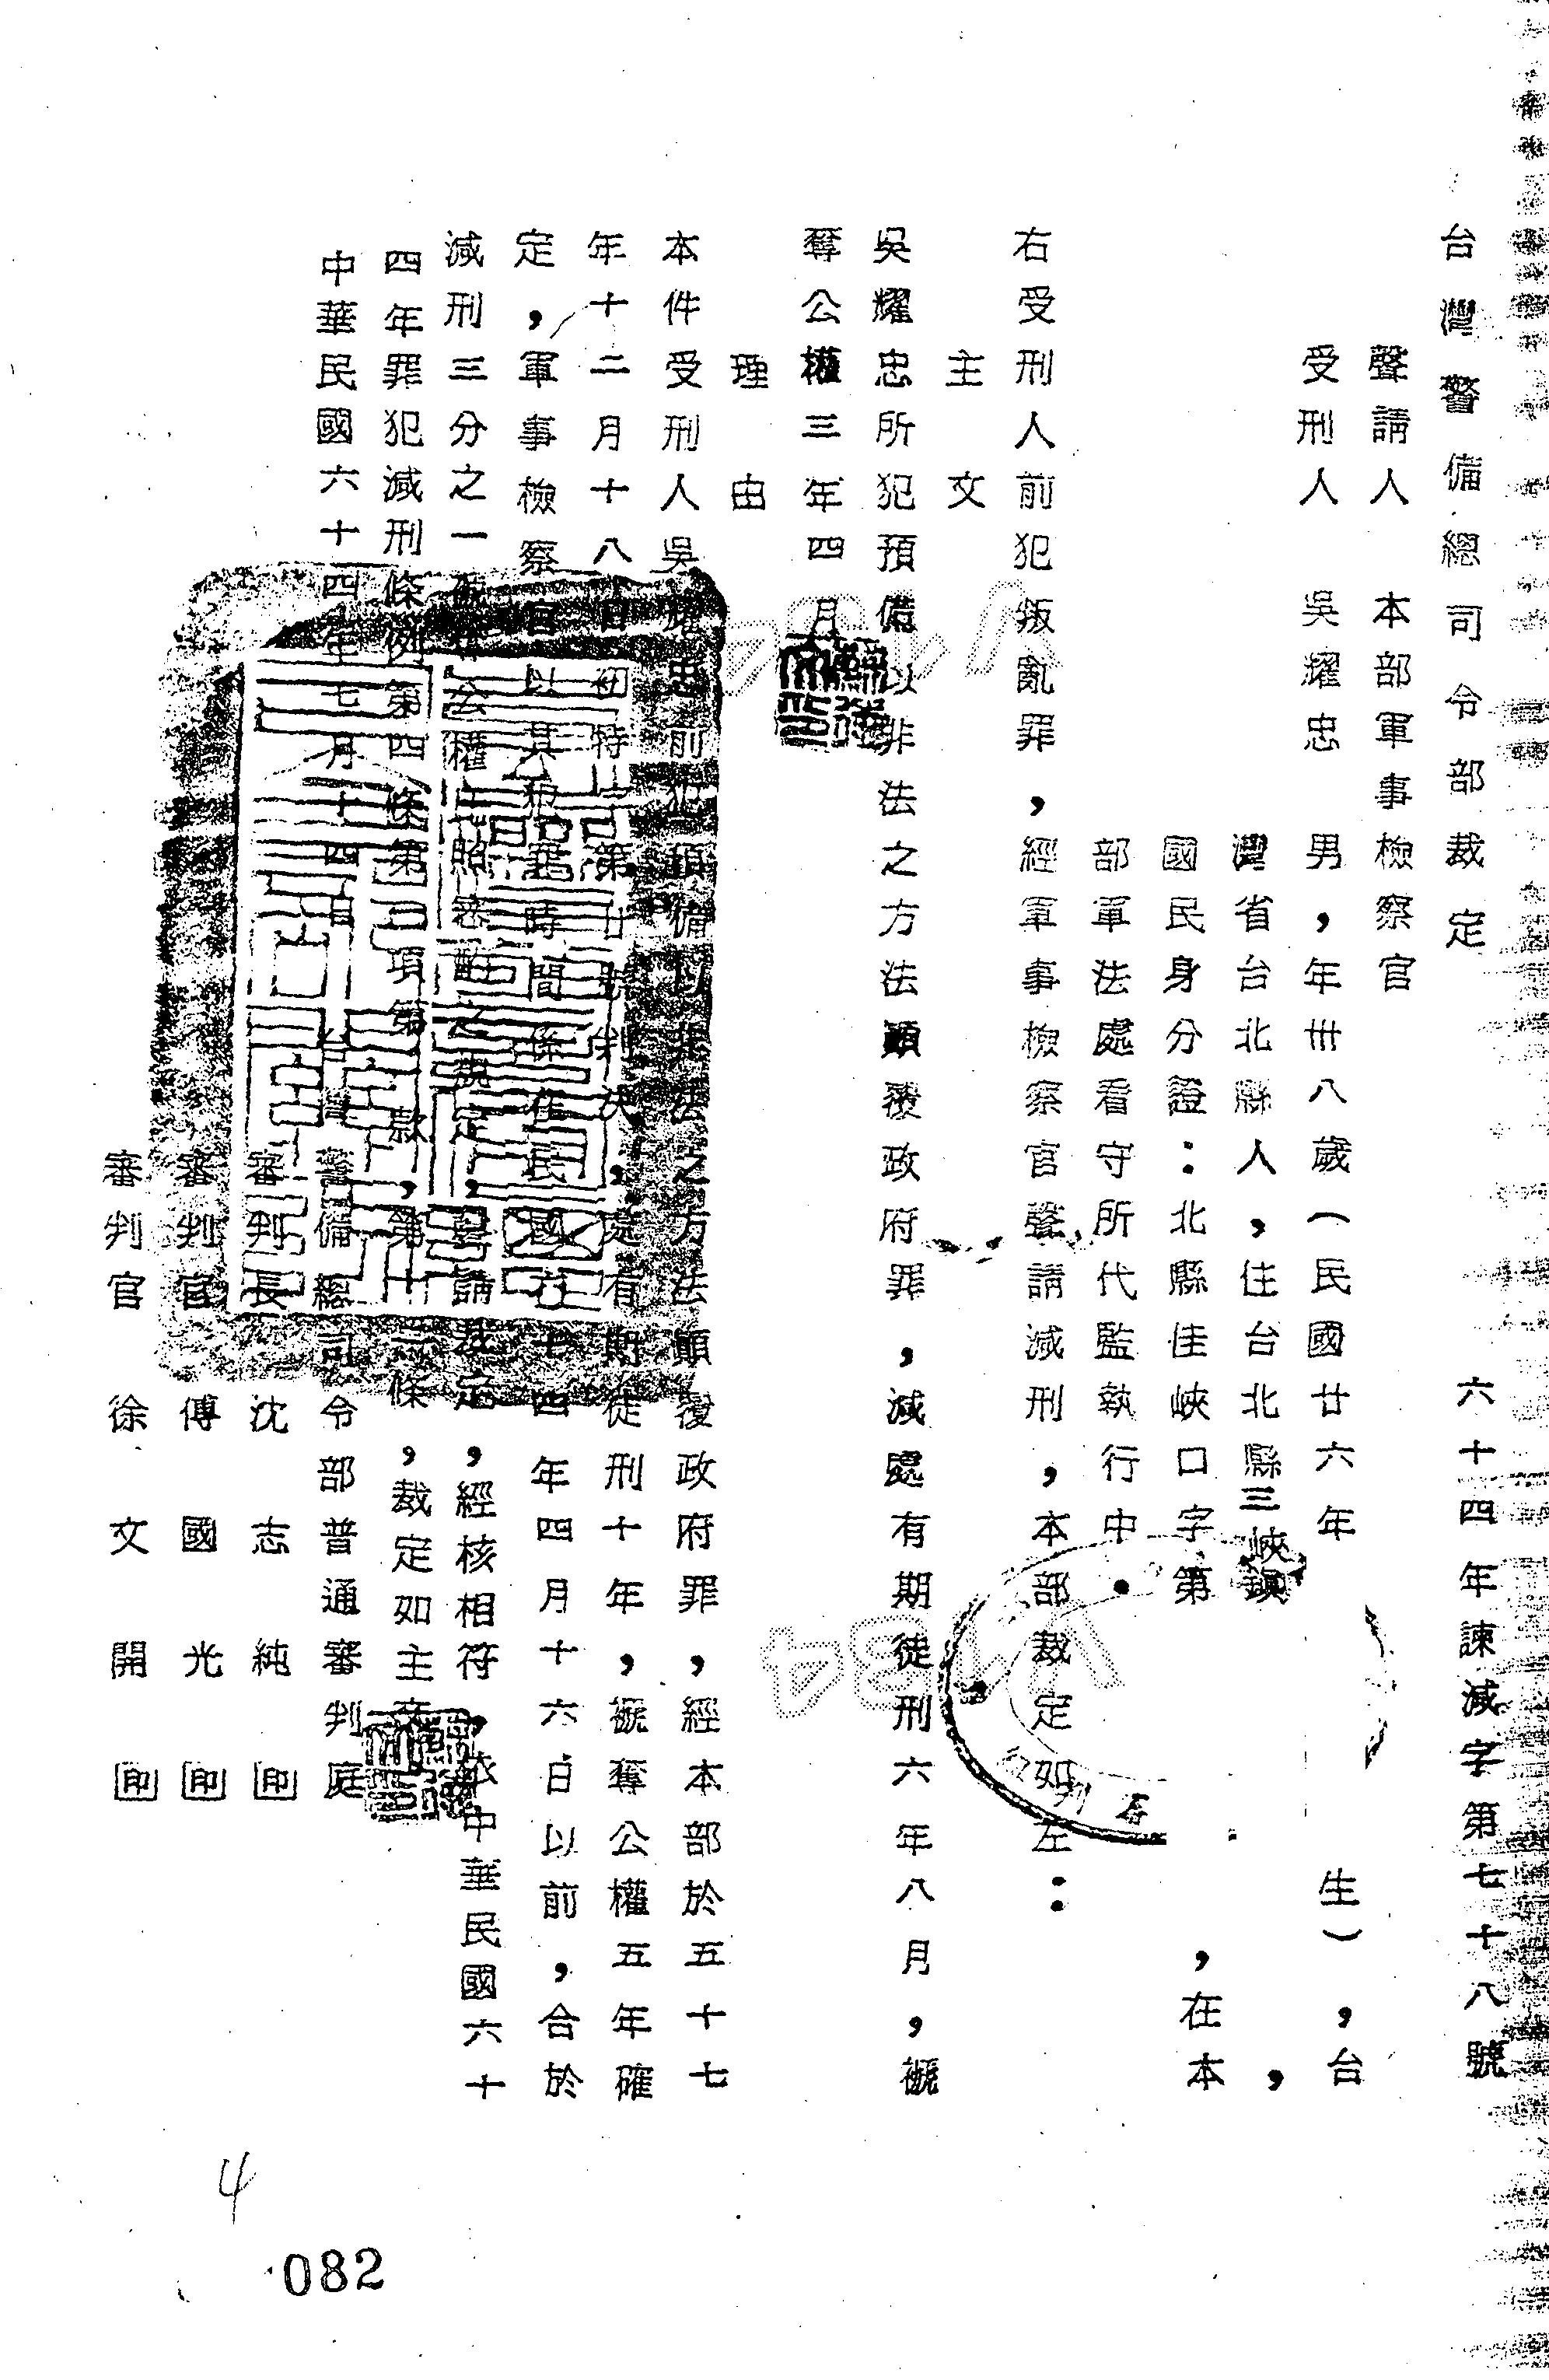 台灣警備總司令部裁定 六十四年諫減字第七十八號
聲請人 本部軍事檢察官
受刑人 吳耀忠 男，年卅八歲（民國廿六年 生），台
灣省台北縣人，住台北縣三峽鎮 ，
國民身分證：北縣佳峽口字第 ，在本
部軍法處看守所代監執行中。
右受刑人前犯叛亂罪，經軍事檢察官聲請減刑，本部裁定如左：
主文
吳耀忠所犯預備以非法之方法顛覆政府罪，減處有期徒刑六年八月，褫
奪公權三年四月
理由
本件受刑人吳耀忠前犯預備以非法之方法顛覆政府罪，經本部於五十七
年十二月十八日初特字第廿號判決，處有期徒刑十年，褫奪公權五年確
定，軍事檢察官以其犯罪時間係在民國六十四年四月十六日以前，合於
減刑三分之一褫奪公權比照忝酌之規定，聲請裁定，經核相符，依中華民國六十
四年罪犯減刑條例第四條第二項第 款，第十三條，裁定如主文
中華民國六十四年七月十四日
台灣警備總司令部普通審判庭
審判長 沈志純 印
審判官 傅國光 印
審判官 徐文開 印
4
082